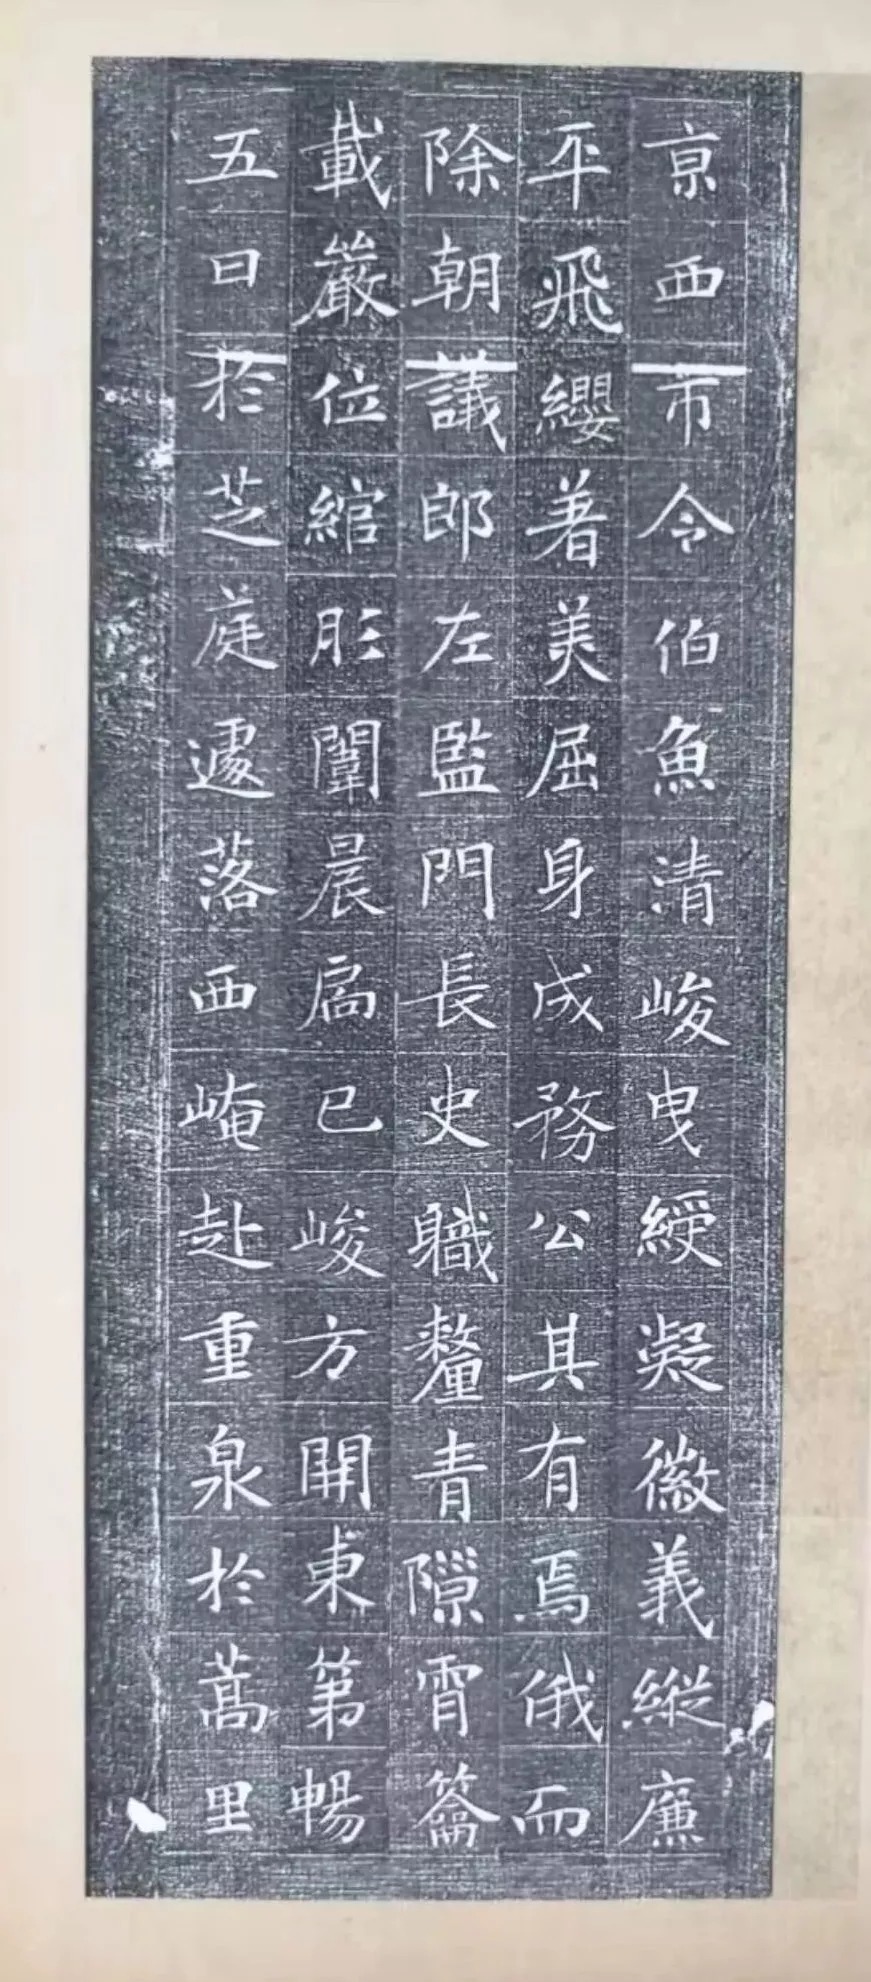 京西市令伯魚清峻曳綬凝徽義縱廉
平飛纓著美屈身成務公其有焉俄而
除朝議郎左監門長史職釐青隙霄籥
載嚴位綰彤闈晨扄已峻方開東第暢
五曰於芝莚遽落西崦赴重泉於蒿里